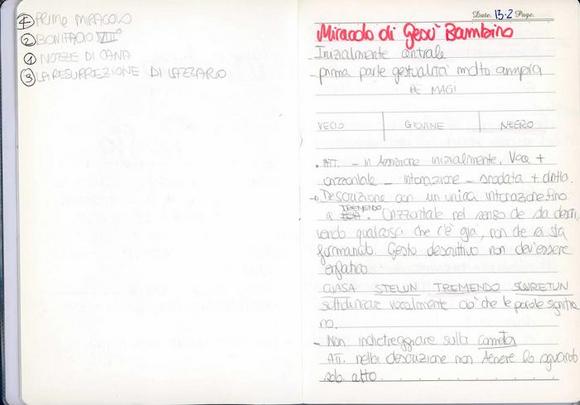 ④ PRIMO MIRACOLO
② BONIFACIO VIII°
① NOZZE DI CANA
③ LA RESURREZIONE DI LAZZARO
Date. 13-2 Page.
Miracolo di Gesù Bambino
Inizialmente centrale
prima parte gestualità molto ampia
RE MAGI
VECIO | GIOVINE | NEGRO
. ATT. - in tensione inizialmente. Voce +
orizzontale - intonazione - snodata + diritta.
Descrizione con un unica intonazione fino
a TREMENDO. Orizzontale nel senso che sta descri
vendo qualcosa che c'è già, non che si sta
formando. Gesto descrittivo non dev'essere
enfatico
STELUN TREMENDO
sottolineare vocalmente ciò che le parole significa
no.
- Non indietreggiare sulla cometa
ATT. nella descrizione non tenere lo sguardo
solo alto.